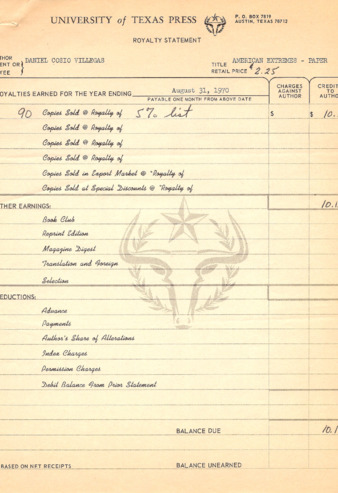 UNIVERSITY of TEXAS PRESS
P. O. BOX 7819
AUSTIN, TEXAS 78712
ROYALTY STATEMENT
DANIEL COSIO VILLEGAS
TITLE AMERICAN EXTREMES - PAPER
RETAIL PRICE $2.25
CHARGES AGAINST AUTHOR
OYALTIES EARNED FOR THE YEAR ENDING August 31, 1970
PAYABLE ONE MONTH FROM ABOVE DATE
90 Copies Sold @ Royalty of 5% list $ $ 10.
Copies Sold @ Royalty of
Copies Sold @ Royalty of
Copies Sold @ Royalty of
Copies Sold in Export Market @ *Royalty of
Copies Sold at Special Discounts @ *Royalty of
THER EARNINGS: 10.1
Book Club
Reprint Edition
Magazine Digest
Translation and Foreign
Selection
EDUCTIONS:
Advance
Payments
Author's Share of Alterations
Index Charges
Permission Charges
Debit Balance From Prior Statement
BALANCE DUE 10.1
BASED ON NET RECEIPTS BALANCE UNEARNED